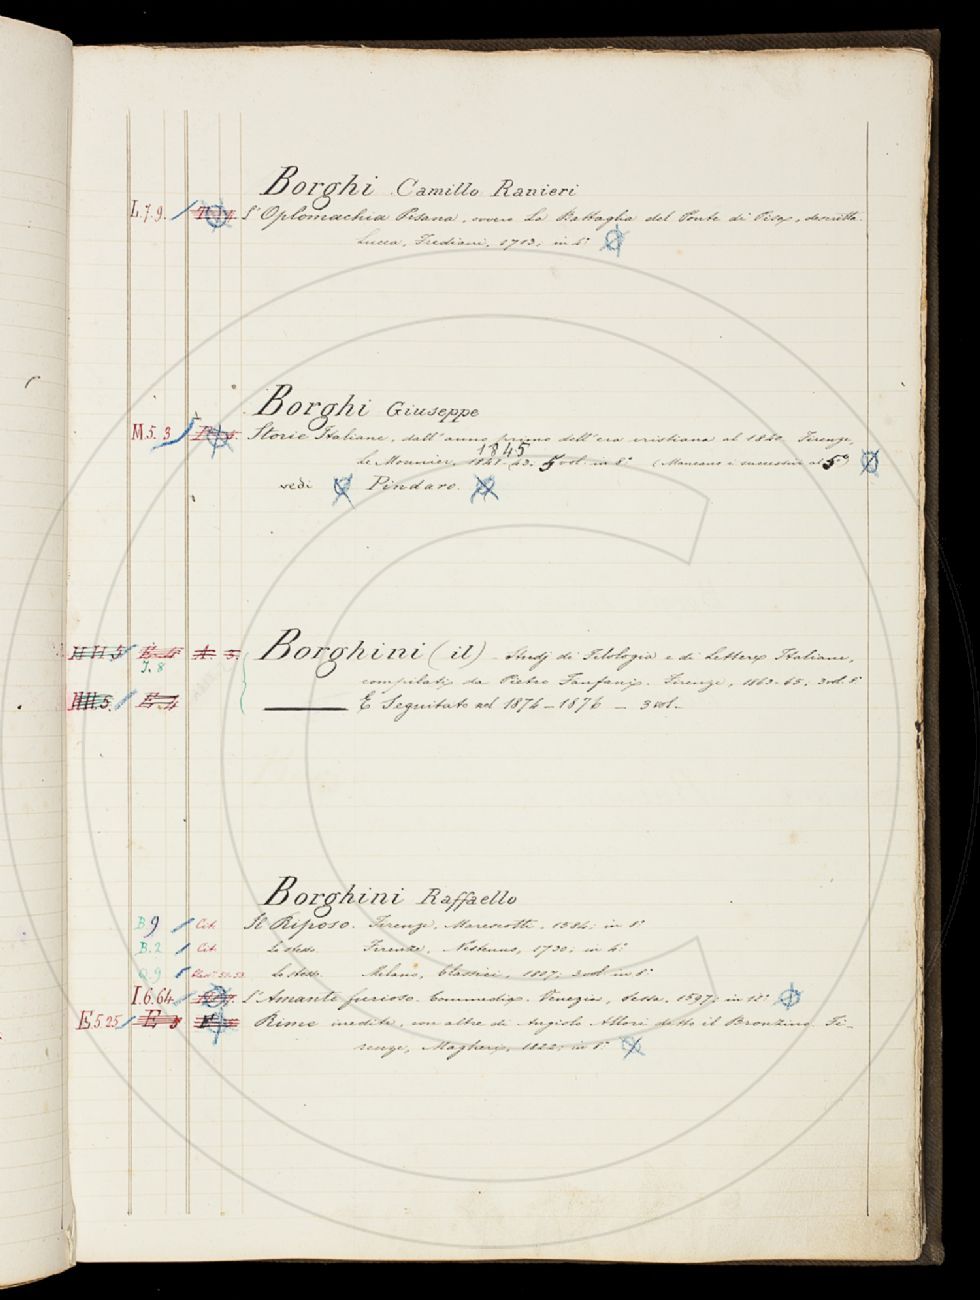 Borghi Camillo Ranieri
L.7.9. L'Oplomachia Pisana, ovvero La Battaglia del Ponte di Pisa, descritta.
Lucca, Frediani, 1713, in 4°
Borghi Giuseppe
M.5.3 Storie Italiane, dall'anno primo dell'era cristiana al 1840. Firenze,
1845
Le Monnier, 1841-43. 5 vol. in 8° (Mancano i successivi al 5°)
vedi Pindaro.
Borghini (il) - Studj di Filologia e di Lettere Italiane,
J.8 compilati da Pietro Fanfani. Firenze, 1863-65, 3 vol. 8°
HH.5. E Seguitato nel 1874-1876 - 3 vol.
Borghini Raffaello
B 9 Cit. Il Riposo. Firenze, Marescotti, 1584, in 8°
B.2 Cit. Lo stesso. Firenze, Nestenus, 1730, in 4°
Q.9 Lo stesso. Milano, Classici, 1807, 3 vol. in 8°
I.6.64. L'Amante furioso. Commedia. Venezia, Sessa, 1597, in 12°
E.5.25 Rime inedite, con altre di Angiolo Allori detto il Bronzino. Fi-
renze, Magheri, 1822, in 8°